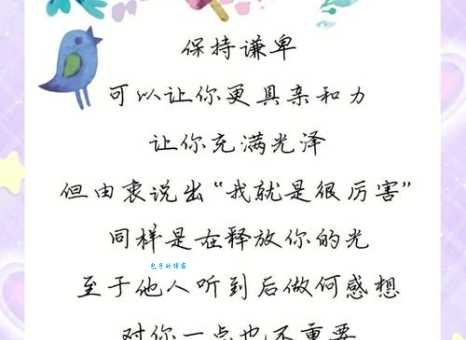 保持谦卑
可以让你更具亲和力
让你充满光泽
但由衷说出“我就是很厉害”
同样是在释放你的光
至于他人听到后做何感想
对你一点也不重要